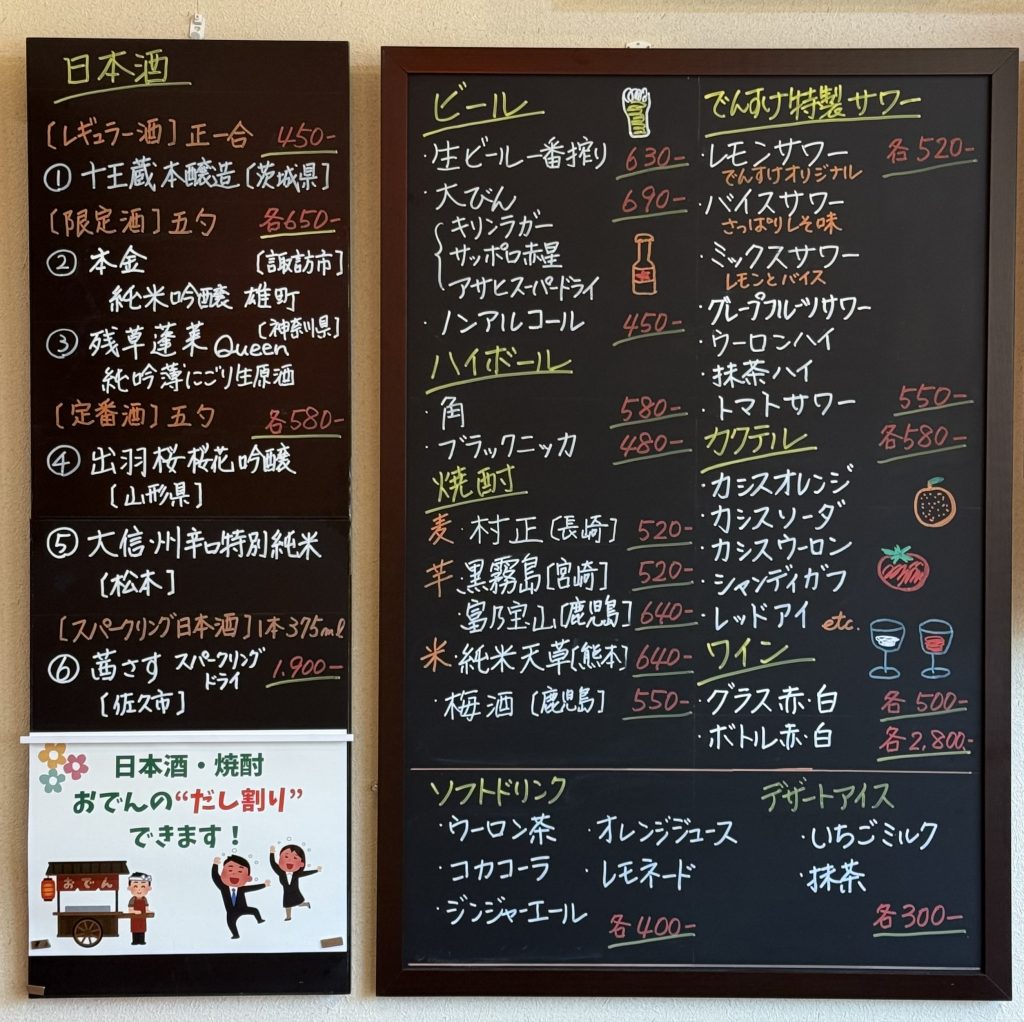 日本酒
[レギュラー酒] 正一合 450-
① 十王蔵 本醸造 [茨城県]
[限定酒] 五勺 各650-
② 本金 [諏訪市]
純米吟醸 雄町
③ 残草蓬莱 Queen [神奈川県]
純吟薄にごり生原酒
[定番酒] 五勺 各580-
④ 出羽桜 桜花吟醸
[山形県]
⑤ 大信州辛口特別純米
[松本]
[スパークリング日本酒] 1本 375ml
⑥ 茜さす スパークリング ドライ 1.900-
[佐久市]
日本酒・焼酎
おでんの“だし割り”
できます！
おでん
ビール
・生ビール 一番搾り 630-
・大びん 690-
キリンラガー
サッポロ赤星
アサヒスーパードライ
・ノンアルコール 450-
ハイボール
・角 580-
・ブラックニッカ 480-
焼酎
麦・村正 [長崎] 520-
芋・黒霧島 [宮崎] 520-
・富乃宝山 [鹿児島] 640-
米・純米天草 [熊本] 640-
・梅酒 [鹿児島] 550-
でんすけ特製サワー
・レモンサワー 各520-
でんすけオリジナル
・バイスサワー
さっぱりしそ味
・ミックスサワー
レモンとバイス
・グレープフルーツサワー
・ウーロンハイ
・抹茶ハイ
・トマトサワー 550-
カクテル 各580-
・カシスオレンジ
・カシスソーダ
・カシスウーロン
・シャンディガフ
・レッドアイ etc.
ワイン
・グラス赤・白 各500-
・ボトル赤・白 各2,800-
ソフトドリンク
・ウーロン茶 ・オレンジジュース
・コカコーラ ・レモネード
・ジンジャーエール 各400-
デザートアイス
・いちごミルク
・抹茶
各300-